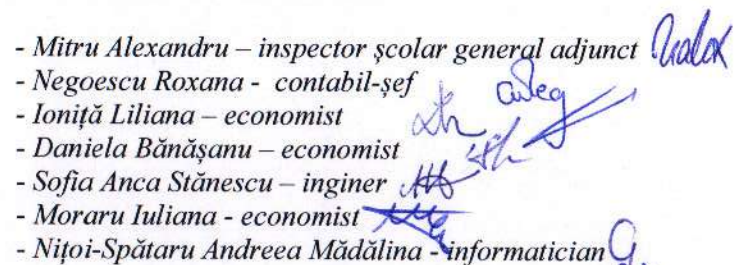 - Mitru Alexandru – inspector școlar general adjunct
- Negoescu Roxana - contabil-șef
- Ioniță Liliana – economist
- Daniela Bănășanu – economist
- Sofia Anca Stănescu – inginer
- Moraru Iuliana - economist
- Nițoi-Spătaru Andreea Mădălina - informatician